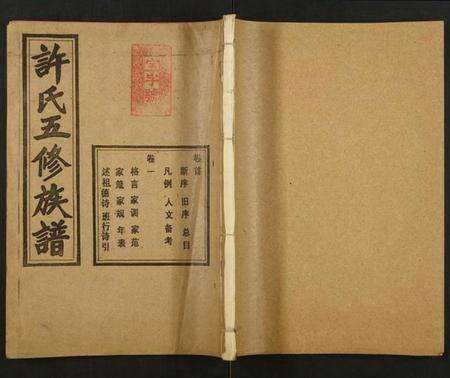 許氏五修族譜
卷首
新序 旧序 总目
凡例 人文备考
卷一
格言 家训 家范
家箴 家规 年表
述祖德诗 班行诗引